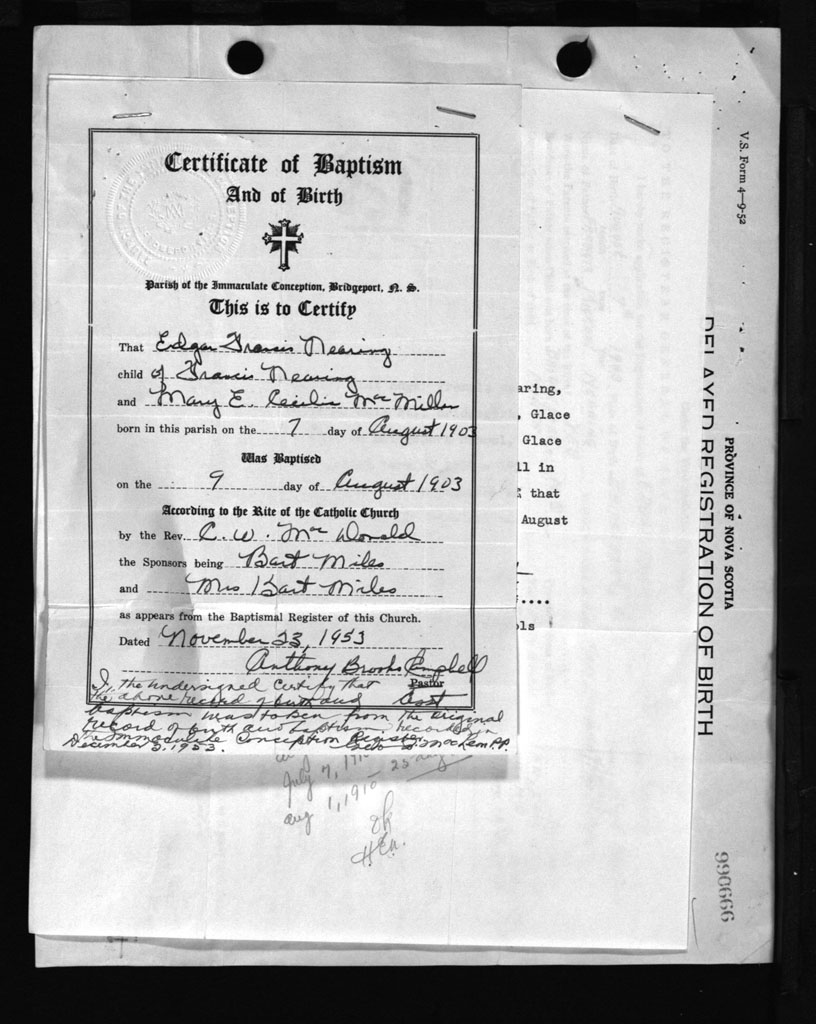 Certificate of Baptism
And of Birth
Parish of the Immaculate Conception, Bridgeport, N. S.
This is to Certify
That Edgar Francis Nearing
child of Francis Nearing
and Mary E. Cecilia McMillan
born in this parish on the 7 day of August 1903
Was Baptised
on the 9 day of August 1903
According to the Rite of the Catholic Church
by the Rev. C. W. MacDonald
the Sponsors being Bart Miles
and Mrs Bart Miles
as appears from the Baptismal Register of this Church.
Dated November 23, 1953
Anthony Brooks Campbell
Pastor
Asst
I, the undersigned certify that
the above record of birth and
baptism was taken from the original
record of birth and baptism recorded in
The Immaculate Conception Register
December 3, 1953.
July 7,
Aug 1, 1910
aring,
, Glace
Glace
ll in
that
August
ols
V.S. Form 4—9-52
PROVINCE OF NOVA SCOTIA
DELAYED REGISTRATION OF BIRTH
990666